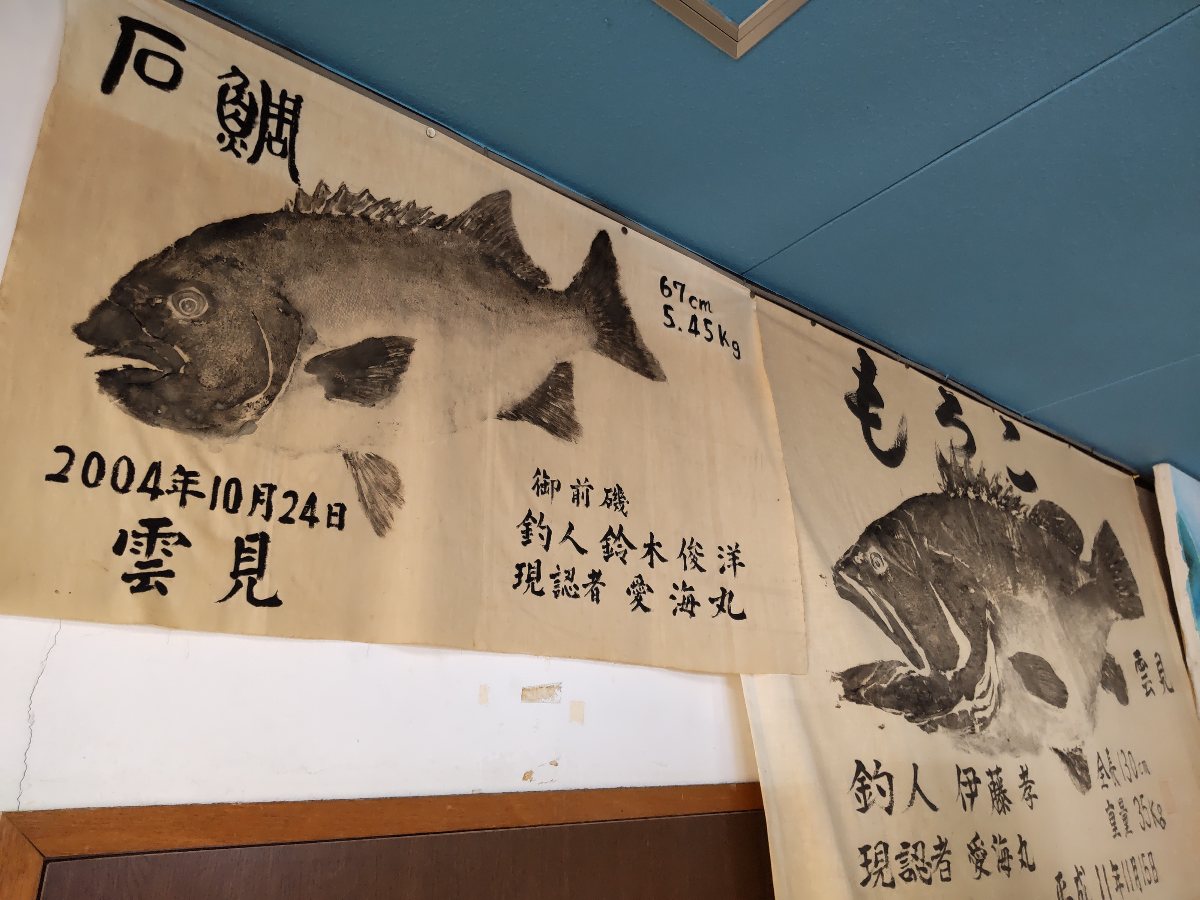 石鯛
67cm
5.45Kg
2004年10月24日
雲見
御前磯
釣人 鈴木俊洋
現認者 愛海丸
もろこ
雲見
釣人 伊藤孝
現認者 愛海丸
全長130cm
重量 35Kg
平成11年11月15日